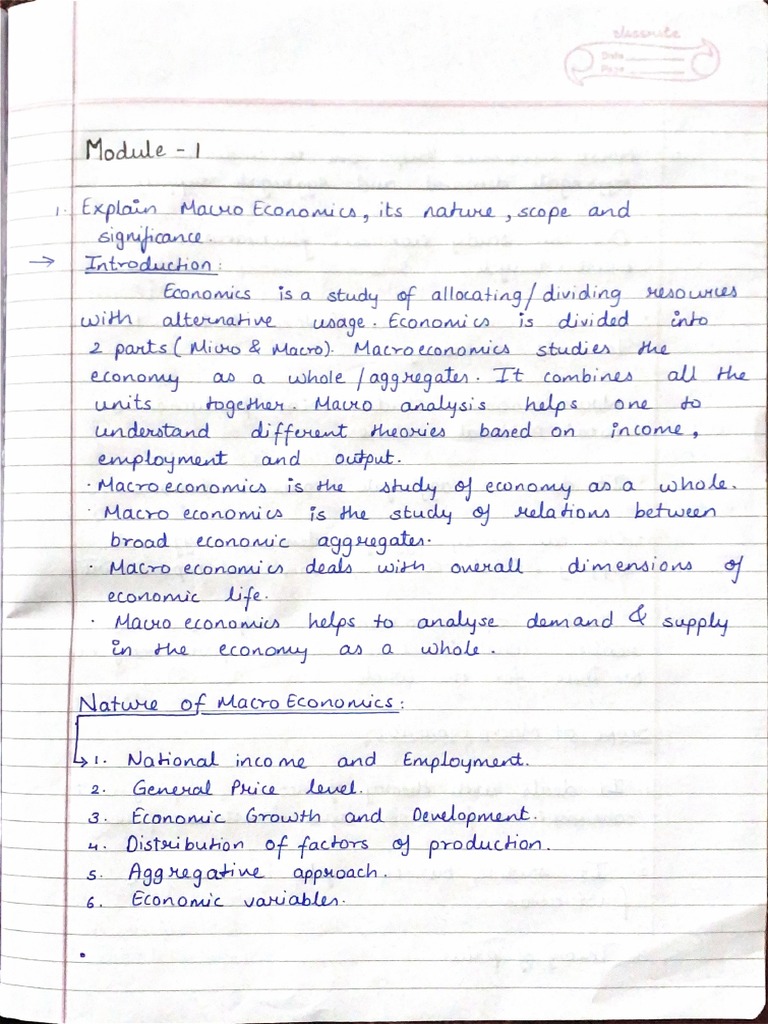 classmate
Date
Page
Module - 1
1. Explain Macro Economics, its nature, scope and
significance.
→ Introduction:
Economics is a study of allocating/dividing resources
with alternative usage. Economics is divided into
2 parts (Micro & Macro). Macroeconomics studies the
economy as a whole /aggregates. It combines all the
units together. Macro analysis helps one to
understand different theories based on income,
employment and output.
· Macroeconomics is the study of economy as a whole.
· Macro economics is the study of relations between
broad economic aggregates.
· Macro economics deals with overall dimensions of
economic life.
· Macro economics helps to analyse demand & supply
in the economy as a whole.
Nature of Macro Economics:
↳ 1. National income and Employment.
2. General Price level.
3. Economic Growth and Development.
4. Distribution of factors of production.
5. Aggregative approach.
6. Economic variables.